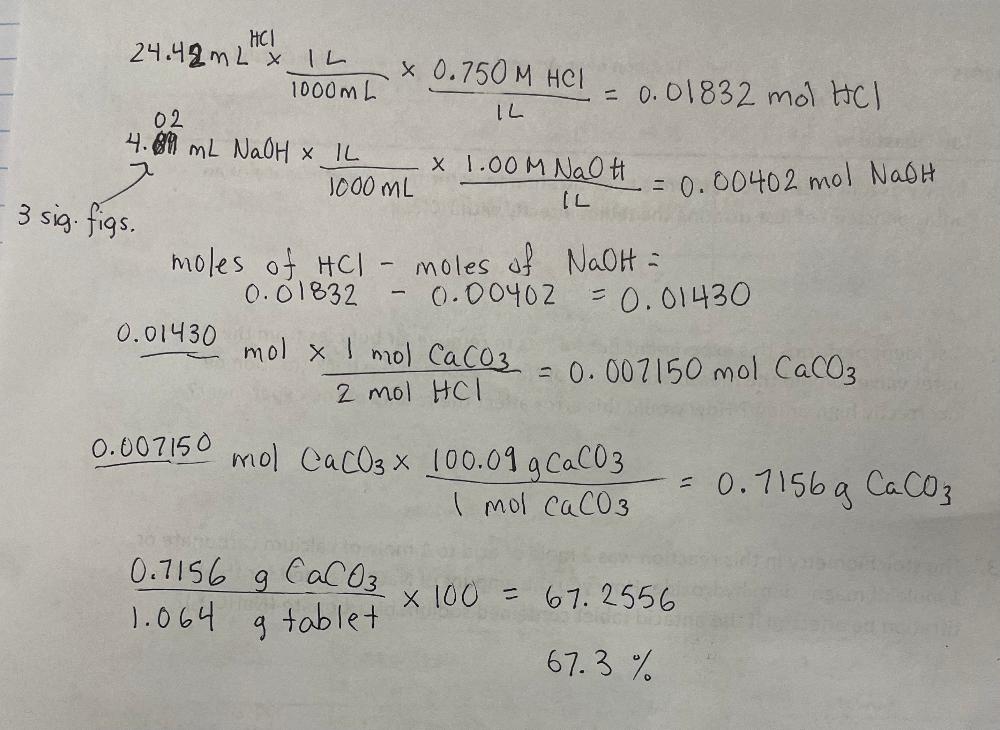 24.42 mL HCl × 1 L / 1000 mL × 0.750 M HCl / 1L = 0.01832 mol HCl
4.02 mL NaOH × 1L / 1000 mL × 1.00 M NaOH / 1L = 0.00402 mol NaOH
3 sig. figs.
moles of HCl - moles of NaOH =
0.01832 - 0.00402 = 0.01430
0.01430 mol × 1 mol CaCO3 / 2 mol HCl = 0.007150 mol CaCO3
0.007150 mol CaCO3 × 100.09 g CaCO3 / 1 mol CaCO3 = 0.7156 g CaCO3
0.7156 g CaCO3 / 1.064 g tablet × 100 = 67.2556
67.3 %